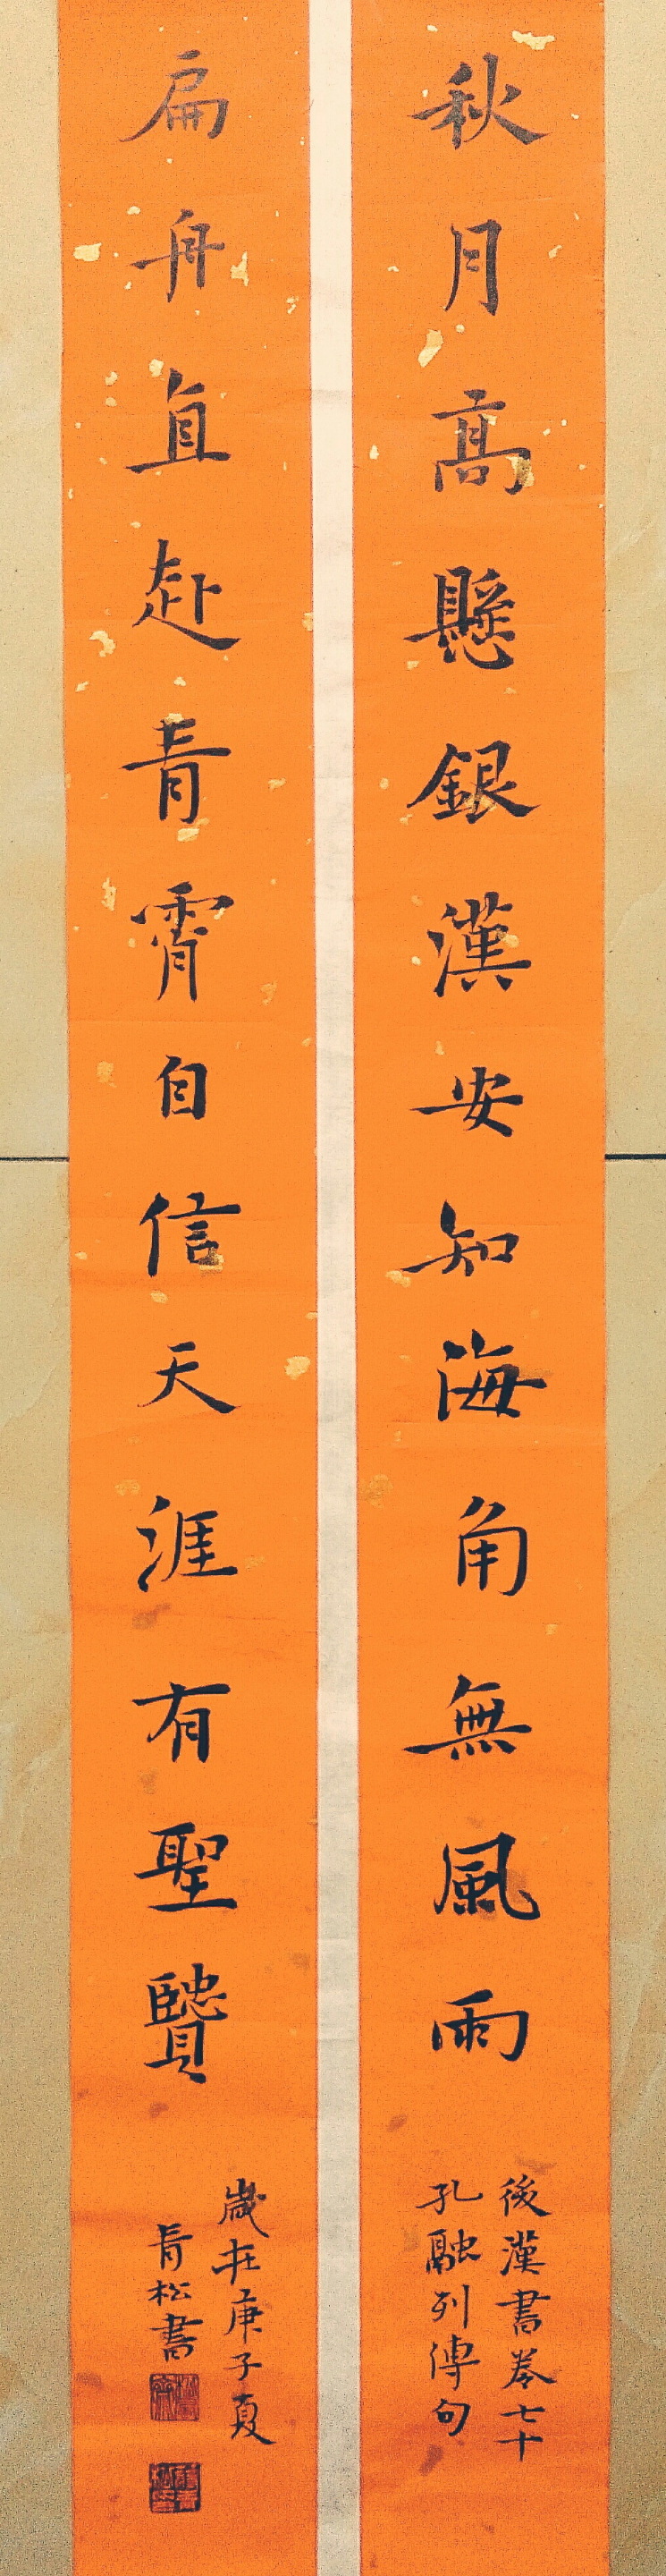 秋月高懸銀漢安知海角無風雨
後漢書卷七十
孔融列傳句
扁舟直赴青霄自信天涯有聖賢
歲在庚子夏
青松書